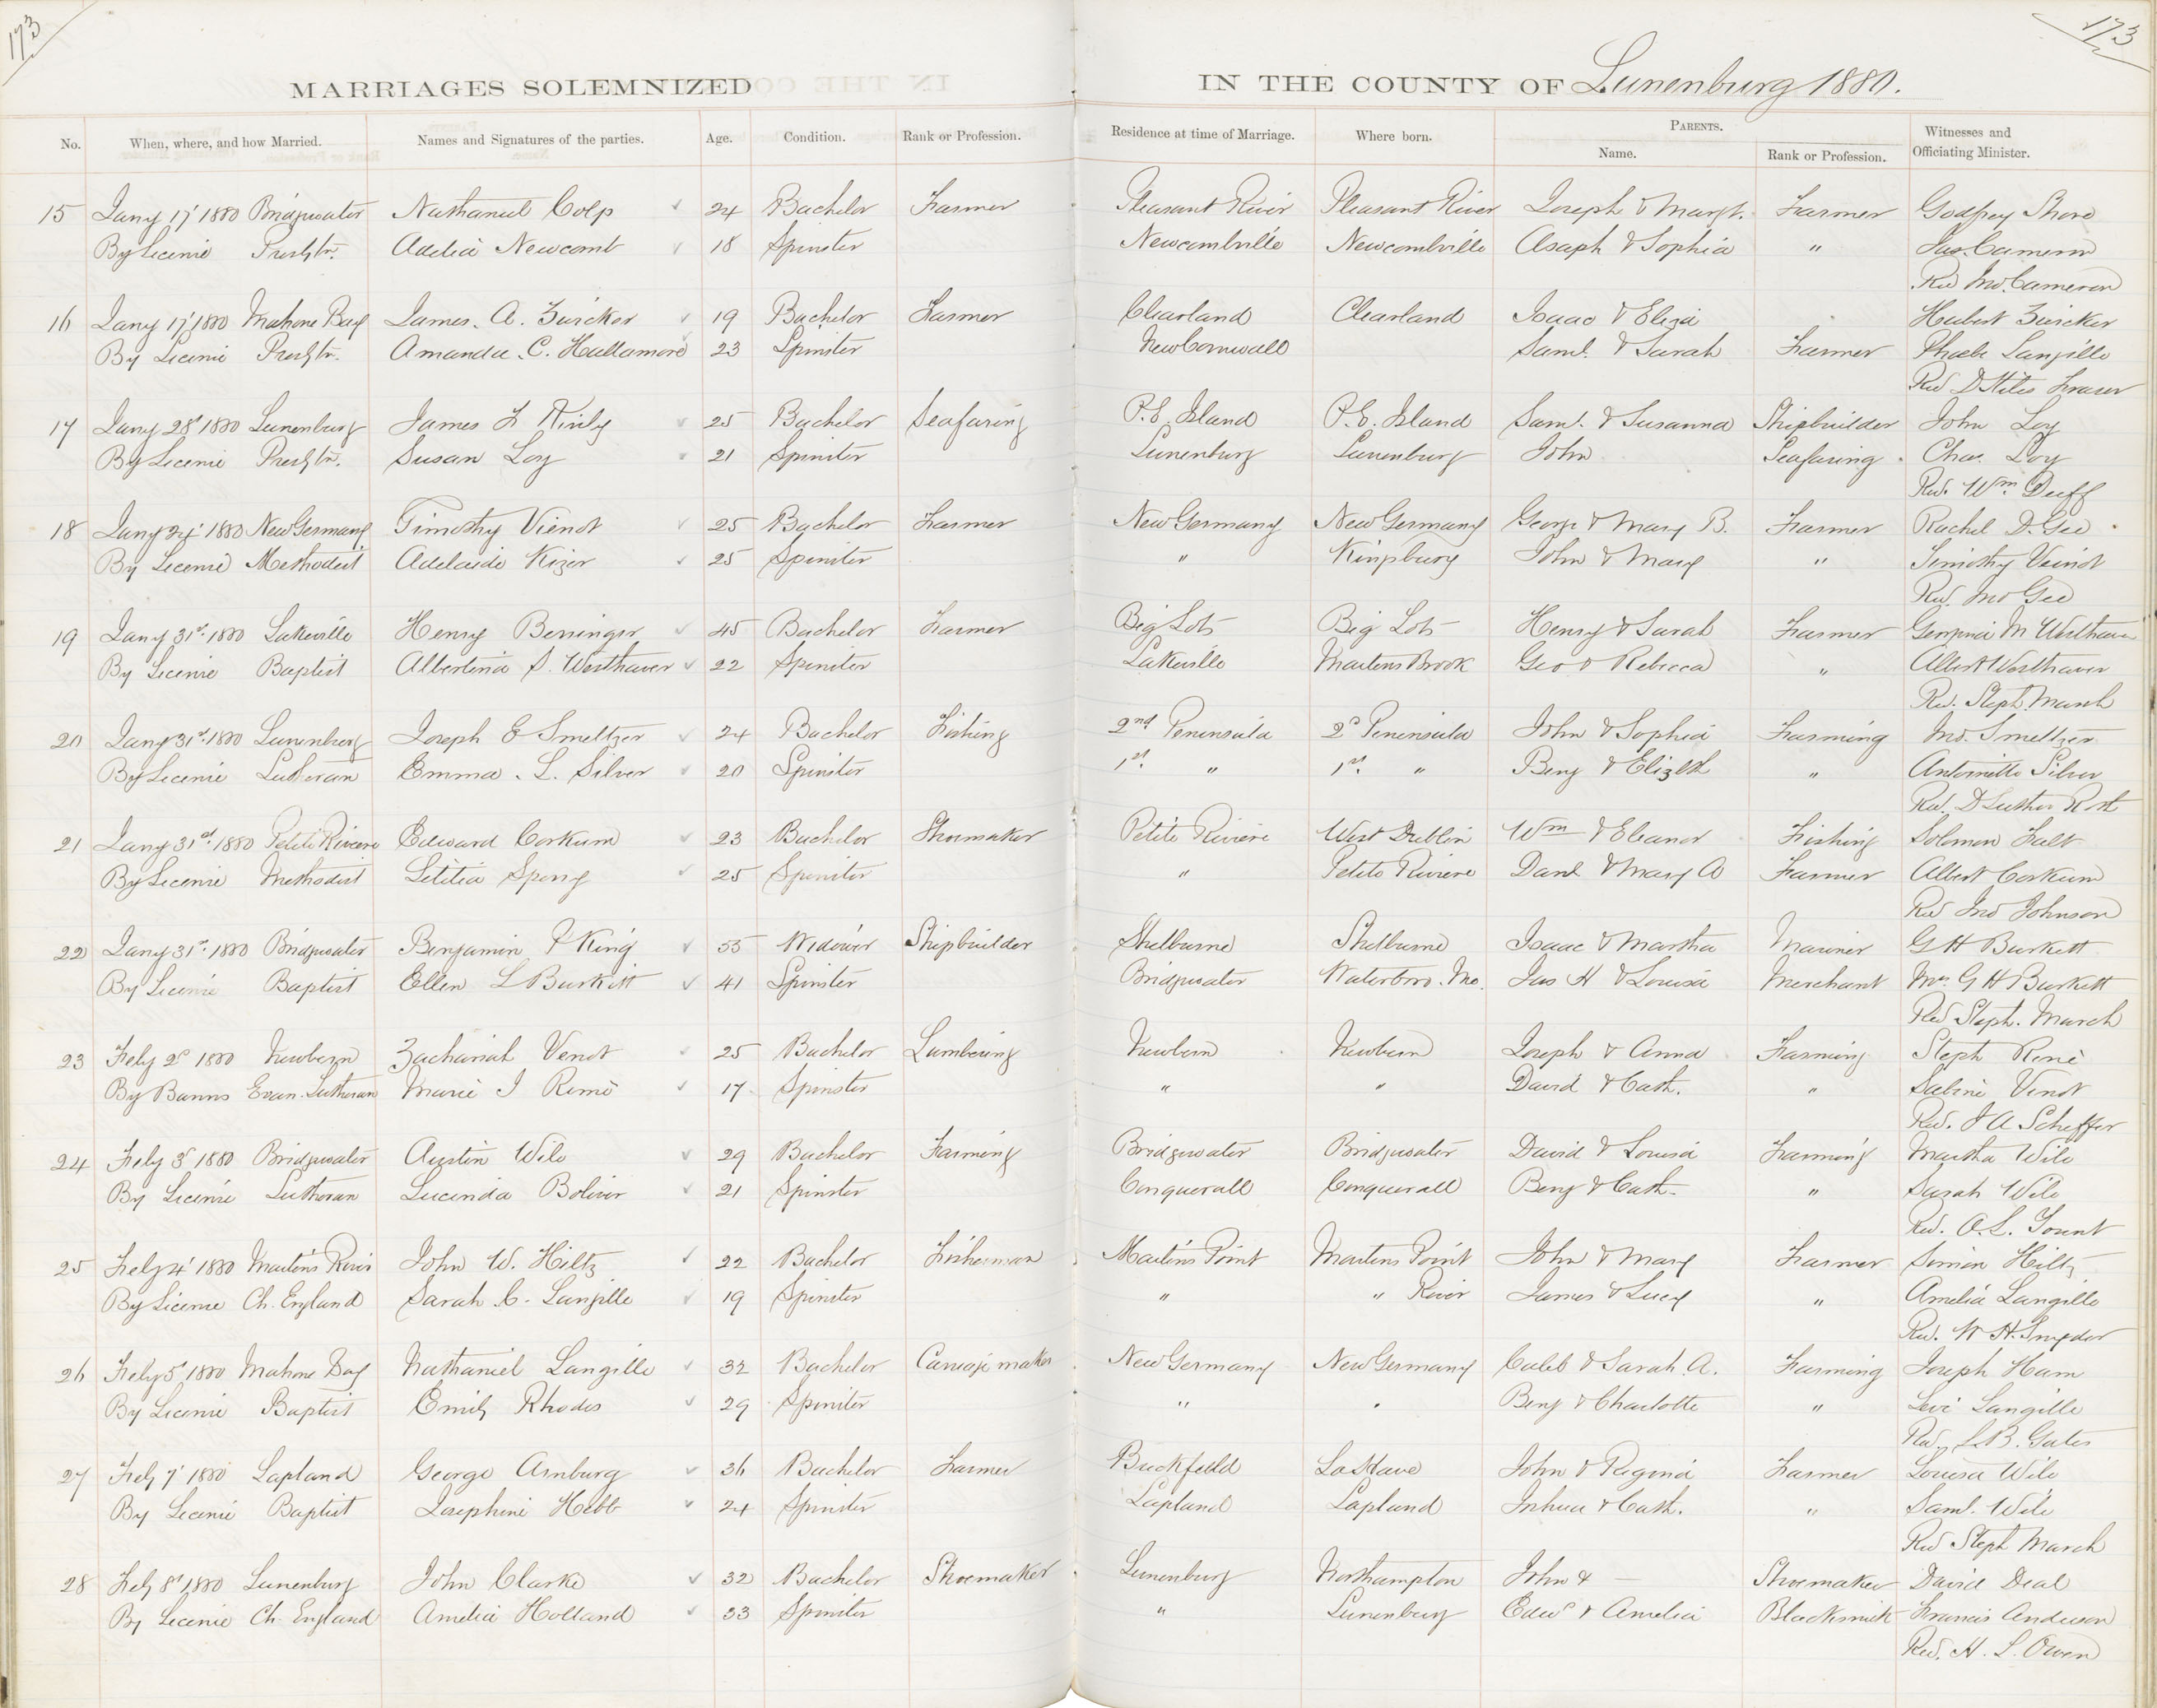 173
173
MARRIAGES SOLEMNIZED IN THE COUNTY OF Lunenburg 1880.
No. When, where, and how Married. Names and Signatures of the parties. Age. Condition. Rank or Profession. Residence at time of Marriage. Where born. PARENTS. Name. Rank or Profession. Witnesses and Officiating Minister.
15 Jany 17' 1880 Bridgwater Nathaniel Colp 24 Bachelor Farmer Pleasant River Pleasant River Joseph & Margt. Farmer Godfrey Shore
By Licence Presbtn. Adelia Newcomb 18 Spinster Newcombville Newcombville Asaph & Sophia " Jas. Cameron
Rev Jno. Cameron
16 Jany 17' 1880 Mahone Bay James. A. Zwicker 19 Bachelor Farmer Clearland Clearland Isaac & Eliza Hubert Zwicker
By Licence Presbtn. Amanda. C. Hallamore 23 Spinster New Cornwall Saml. & Sarah Farmer Phoebe Langille
Rev D Stiles Fraser
17 Jany 28' 1880 Lunenburg James F 25 Bachelor Seafaring P.E. Island P.E. Island Saml. & Susanna Shipbuilder John Loy
By Licence Presbtn. Susan Loy 21 Spinster Lunenburg Lunenburg John Seafaring Chas. Loy
Rev. Wm Duff
18 Jany 1880 New Germany Timothy Vienot 25 Bachelor Farmer New Germany New Germany George & Mary B. Farmer Rachel D. Gee
By Licence Methodist Adelaide Kizer 25 Spinster " Kingsburg John & Mary " Timothy Veinot
Rev. Jno Gee
19 Jany 31st 1880 Lakeville Henry Berringer 45 Bachelor Farmer Big Lots Big Lots Henry & Sarah Farmer M Westhaver
By Licence Baptist Albertina S. Westhaver 22 Spinster Lakeville Martens Brook Geo & Rebecca " Albert Westhaver
Rev. Steph March
20 Jany 31st 1880 Lunenburg Joseph E Smeltzer 24 Bachelor Fishing 2nd Peninsula 2d Peninsula John & Sophia Farming Jno. Smeltzer
By Licence Lutheran Emma. L. Silver 20 Spinster 1st. " 1st. " Benj & Elizbth " Antoinette Silver
Rev. D Luther Roth
21 Jany 31st 1880 Petite Riviere Edward Corkum 23 Bachelor Shoemaker Petite Riviere West Dublin Wm & Eleanor Fishing Solomon Falt
By Licence Methodist Letitia Sperry 25 Spinster " Petite Riviere Danl & Mary A Farmer Albert Corkum
Rev Jno Johnson
22 Jany 31st 1880 Bridgwater Benjamin P King 55 Widower Shipbuilder Shelburne Shelburne Isaac & Martha Mariner G H Burkett
By Licence Baptist Ellen L Burkett 41 Spinster Bridgwater Waterboro. Me. Jas H & Louisa Merchant Mrs G H Burkett
Rev Steph. March
23 Feby 2d 1880 Newbern Zachariah Venot 25 Bachelor Lumbering Newbern Newbern Joseph & Anna Farming Steph
By Banns Evan. Lutheran Marie J 17 Spinster " " David & Cath. " Sabine Venot
Rev. J A Scheffer
24 Feby 3d 1880 Bridgwater Austin Wile 29 Bachelor Farming Bridgwater Bridgwater David & Louisa Farming Martha Wile
By Licence Lutheran Lucinda Boliver 21 Spinster Conquerall Conquerall Benj & Cath. " Sarah Wile
Rev. A. L. Yount
25 Feby 4' 1880 Martins River John W. Hiltz 22 Bachelor Fisherman Martins Point Martins Point John & Mary Farmer Simon Hiltz
By License Ch. England Sarah C. Langille 19 Spinster " " River James & Lucy " Amelia Langille
Rev. W H. Snyder
26 Feby 5' 1880 Mahone Bay Nathaniel Langille 32 Bachelor Carriage maker New Germany New Germany Caleb & Sarah A. Farming Joseph Ham
By Licence Baptist Emily Rhodes 29 Spinster " Benj & Charlotte " Levi Langille
Rev. L. B. Gates
27 Feby 7' 1880 Lapland George Arnburg 36 Bachelor Farmer Buckfield LaHave John & Regina Farmer Louisa Wile
By Licence Baptist Josephine Hebb 24 Spinster Lapland Lapland Joshua & Cath. " Saml. Wile
Rev Steph March
28 Feby 8' 1880 Lunenburg John Clarke 32 Bachelor Shoemaker Lunenburg Northampton John & — Shoemaker David Deal
By Licence Ch. England Amelia Holland 33 Spinster " Lunenburg Edwd & Amelia Blacksmith Francis Anderson
Rev. H. L. Owen